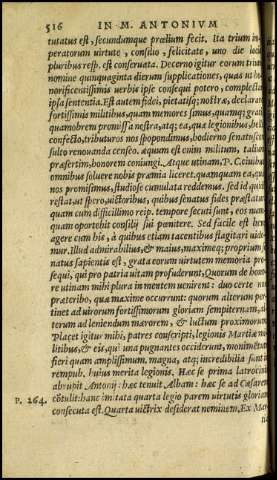 516 IN M. ANTONIVM
tutatus est, secundumque prælium fecit. Ita trium im-
peratorum uirtute, consilio, felicitate, uno die loci
pluribus resp. est conseruata. Decerno igitur eorum triu
nomine quinquaginta dierum supplicationes, quas ut ho
norificentissimis uerbis ipse consequi potero, complectar
ipsa sententia. Est autem fidei, pietatisq; nostræ, declarare
fortissimis militibus, quam memores simus, quamq; grati.
quamobrem promissa nostra, atq; ea, quæ legionibus, bello
confecto, tributuros nos spopondimus, hodierno senatusco
sulto renouanda censeo. æquum est enim militum, talium
præsertim, honorem coniungi. Atque utinam, P. C. ciuibus
omnibus soluere nobis præmia liceret. quanquam ea, quæ
nos promisimus, studiose cumulata reddemus. Sed id quidem
restat, ut spero, uictoribus, quibus senatus fides præstatur.
quam cum difficillimo reip. tempore secuti sunt, eos num
quam oportebit consilij sui pœnitere. Sed facile est bene
agere cum his, à quibus etiam tacentibus flagitari uide-
mur. Illud admirabilius, & maius, maximeq; proprium se
natus sapientis est, grata eorum uirtutem memoria pro-
sequi, qui pro patria uitam profuderunt. Quorum de hono
re utinam mihi plura in mentem uenirent: duo certe non
præteribo, quæ maxime occurrunt: quorum alterum per
tinet ad uirorum fortissimorum gloriam sempiternam, al
terum ad leniendum mœrorem, & luctum proximorum.
Placet igitur mihi, patres conscripti, legionis Martiæ mi
litibus, & eis, qui una pugnantes occiderunt, monimentum
fieri quam amplissimum. magna, atq; incredibilia sunt in
rempub. huius merita legionis. Hæc se prima latrocinio
abrupit Antonij: hæc tenuit Albam: hæc se ad Cæsarem
P. 264. cõtulit: hanc imitata quarta legio parem uirtutis gloriam
consecuta est. Quarta uictrix desiderat neminem. Ex Mar